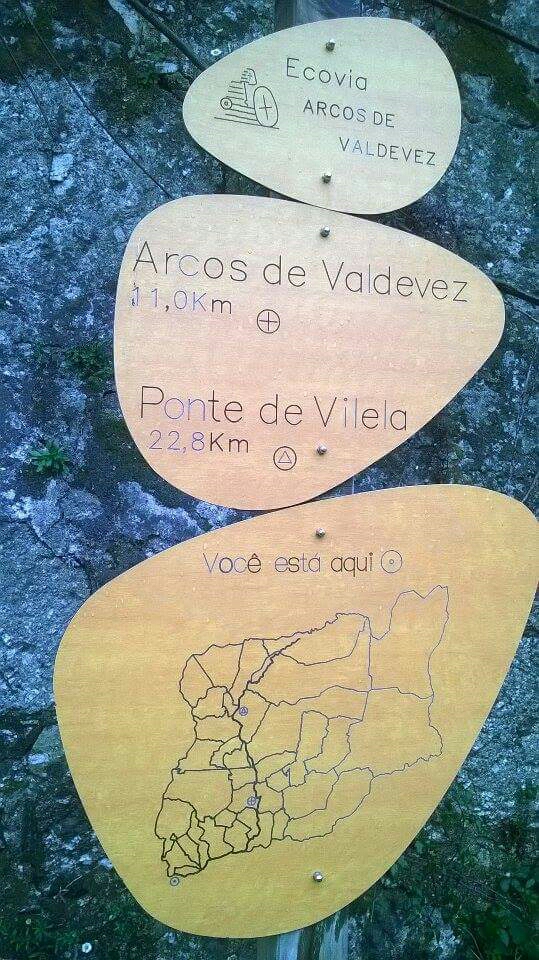 Ecovia
ARCOS DE
VALDEVEZ
Arcos de Valdevez
11,0Km
Ponte de Vilela
22,8Km
Você está aqui